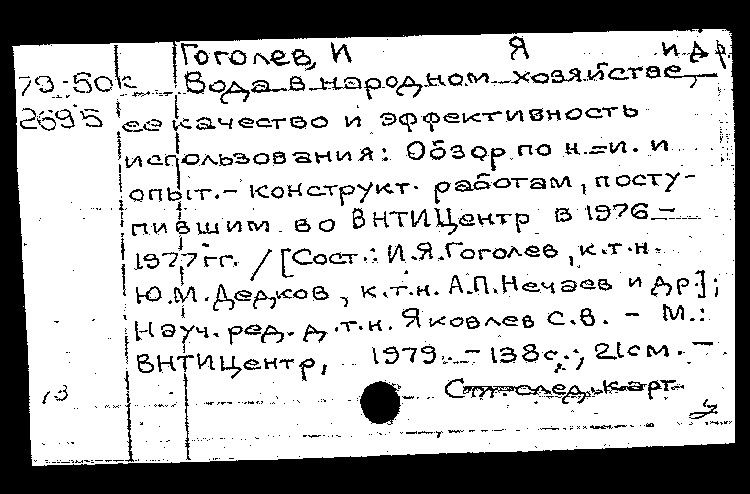 Гоголев, И Я и др
79-50к Вода в народном хозяйстве,
2695 ее качество и эффективность
использования: Обзор по н.=и. и
опыт.- конструкт. работам, посту-
пившим во ВНТИЦентр в 1976-
1977 гг. / [Сост.: И.Я.Гоголев, к.т.н.
Ю.М.Дедков, к.т.н. А.П.Нечаев и др.];
Науч. ред. д.т.н. Яковлев С.В. - М.:
ВНТИЦентр, 1979. - 138с.; 21см. -
См. след. карт